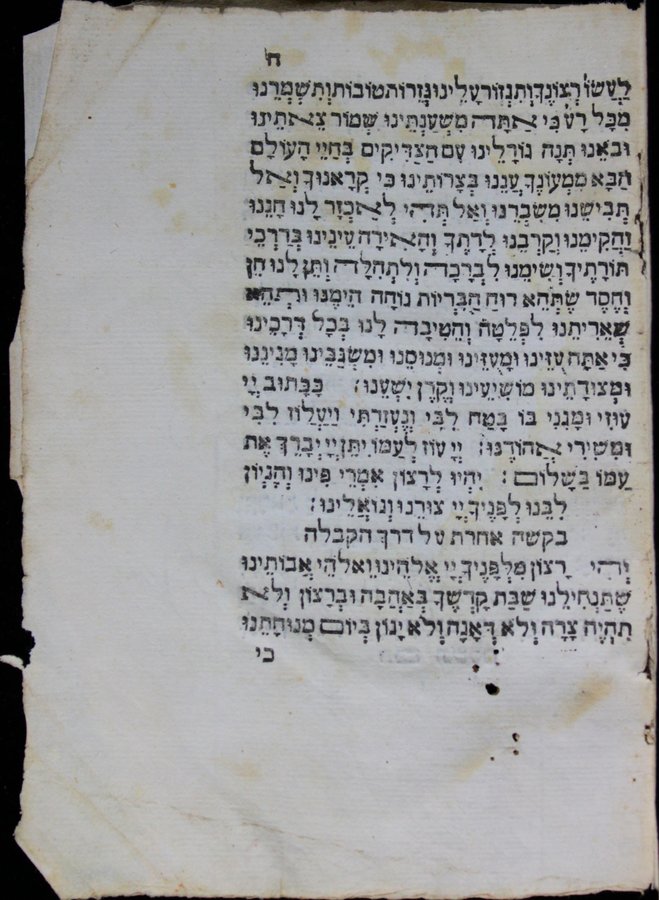 ח
לַעֲשׂוֹ רְצוֹנֶךָ וְתִגְזוֹר עָלֵינוּ גְּזֵרוֹת טוֹבוֹת וְתִשְׁמְרֵנוּ
מִכָּל רָע כִּי אַתָּה מִשְׁעַנְתֵּינוּ שְׁמוֹר צֵאתֵינוּ
וּבֹאֵנוּ תְּנָה גוֹרָלֵינוּ עִם הַצַּדִּיקִים בְּחַיֵּי הָעוֹלָם
הַבָּא מִמְּעוֹנֶךָ עֲנֵנוּ בְּצָרוֹתֵינוּ כִּי קְרָאנוּךָ וְאַל
תְּבִישֵׁנוּ מִשִּׂבְרֵנוּ וְאַל תְּהִי לְאַכְזָר לָנוּ חָנֵּנוּ
וַהֲקִימֵנוּ וְקָרְבֵנוּ לְדָתֶךָ וְהָאִירָה עֵינֵינוּ בְּדַרְכֵי
תּוֹרָתֶיךָ וְשִׂימֵנוּ לִבְרָכָה וְלִתְהִלָּה וְתֵן לָנוּ חֵן
וָחֶסֶד שֶׁתְּהֵא רוּחַ הַבְּרִיּוֹת נוֹחָה הֵימֶנּוּ וּתְהֵא
שְׁאֵרִיתֵנוּ לִפְלֵטָה וְהֵטִיבָה לָנוּ בְּכָל דְּרָכֵינוּ
כִּי אַתָּה עֻזֵּינוּ וּמָעֻזֵּינוּ וּמְנוּסֵנוּ וּמִשְׂגַּבֵּינוּ מָגִינֵּנוּ
וּמְצוּדָתֵינוּ מוֹשִׁיעֵינוּ וְקֶרֶן יִשְׁעֵנוּ׃ כַּכָּתוּב יְיָ
עוּזִּי וּמָגִנִּי בּוֹ בָטַח לִבִּי וְנֶעֱזָרְתִּי וַיַּעֲלוֹז לִבִּי
וּמִשִּׁירִי אֲהוֹדֶנּוּ׃ יְיָ עוֹז לְעַמּוֹ יִתֵּן יְיָ יְבָרֵךְ אֶת
עַמּוֹ בַשָּׁלוֹם׃ יִהְיוּ לְרָצוֹן אִמְרֵי פִינוּ וְהֶגְיוֹן
לִבֵּנוּ לְפָנֶיךָ יְיָ צוּרֵנוּ וְגוֹאֲלֵינוּ׃
בקשה אחרת על דרך הקבלה
יְהִי רָצוֹן מִלְּפָנֶיךָ יְיָ אֱלֹהֵינוּ וֵאלֹהֵי אֲבוֹתֵינוּ
שֶׁתַּנְחִילֵנוּ שַׁבַּת קָדְשֶׁךָ בְּאַהֲבָה וּבְרָצוֹן וְלֹא
תִהְיֶה צָרָה וְלֹא דְּאָגָה וְלֹא יָגוֹן בְּיוֹם מְנוּחָתֵנוּ
כי